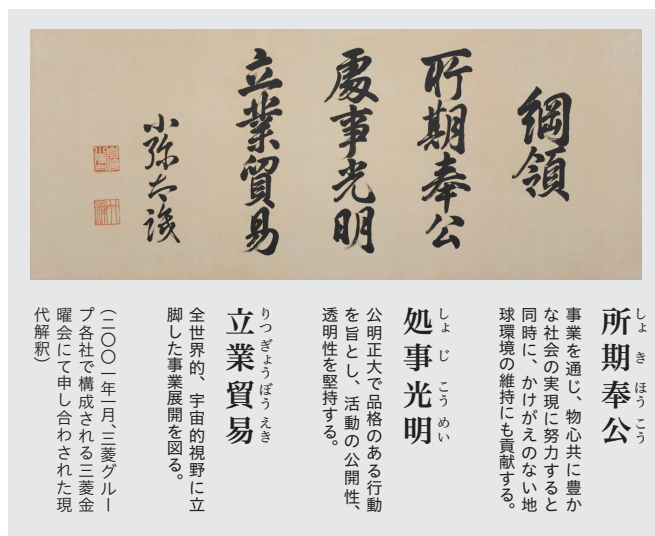 綱領
所期奉公
處事光明
立業貿易
小弥太識
所期奉公
しょきほうこう
事業を通じ、物心共に豊か
な社会の実現に努力すると
同時に、かけがえのない地
球環境の維持にも貢献する。
処事光明
しょじこうめい
公明正大で品格のある行動
を旨とし、活動の公開性、
透明性を堅持する。
立業貿易
りつぎょうぼうえき
全世界的、宇宙的視野に立
脚した事業展開を図る。
（二〇〇一年一月、三菱グルー
プ各社で構成される三菱金
曜会にて申し合わされた現
代解釈）